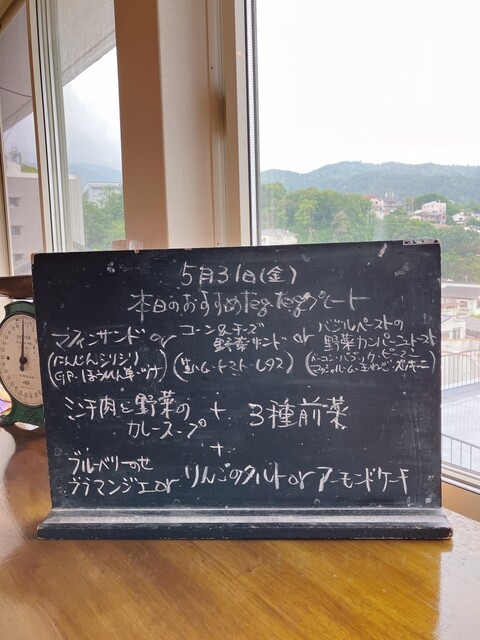 5月31日(金)
本日のおすすめだんだんプレート
マフィンサンド or コーン&チーズ野菜サンド or バジルペーストの野菜カンパーニュトスト
(にんじんシリシリ GP・ほうれん草・ツナ) (生ハム・トマト・レタス) (ベーコン・パプリカ・ピーマン マッシュルーム・玉ねぎ・ズッキーニ)
ミンチ肉と野菜の + 3種前菜
カレースープ
+
ブルーベリーのせ
ブラマンジェ or りんごのタルト or アーモンドケーキ